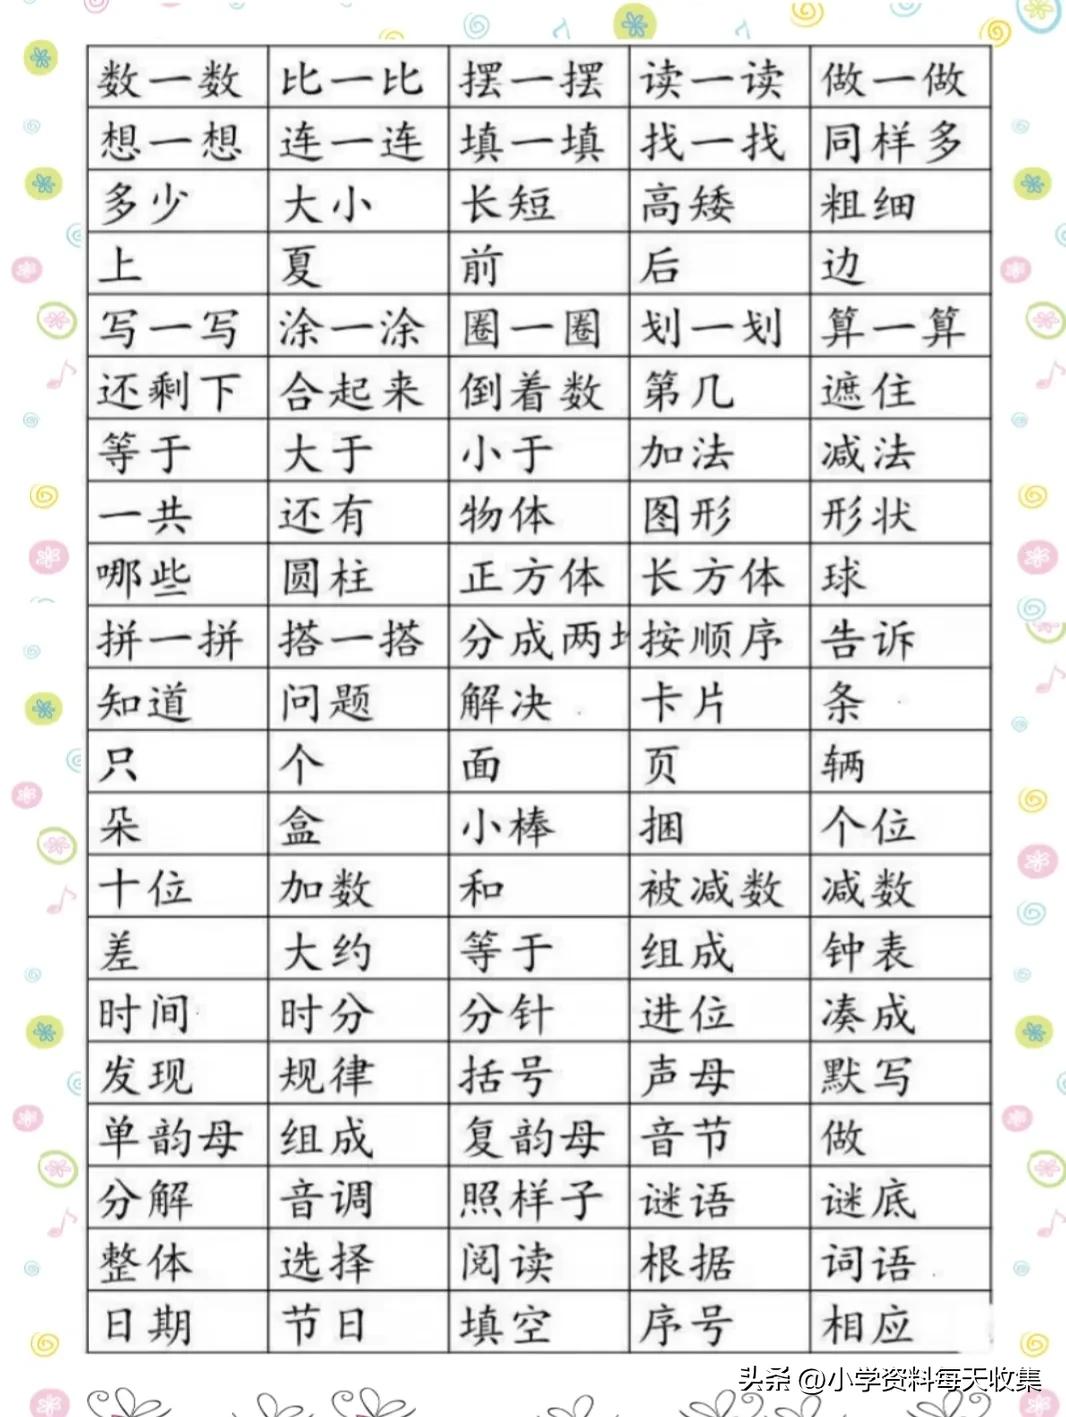 数一数 比一比 摆一摆 读一读 做一做
想一想 连一连 填一填 找一找 同样多
多少 大小 长短 高矮 粗细
上 夏 前 后 边
写一写 涂一涂 圈一圈 划一划 算一算
还剩下 合起来 倒着数 第几 遮住
等于 大于 小于 加法 减法
一共 还有 物体 图形 形状
哪些 圆柱 正方体 长方体 球
拼一拼 搭一搭 分成两 按顺序 告诉
知道 问题 解决 卡片 条
只 个 面 页 辆
朵 盒 小棒 捆 个位
十位 加数 和 被减数 减数
差 大约 等于 组成 钟表
时间 时分 分针 进位 凑成
发现 规律 括号 声母 默写
单韵母 组成 复韵母 音节 做
分解 音调 照样子 谜语 谜底
整体 选择 阅读 根据 词语
日期 节日 填空 序号 相应
头条 @小学资料每天收集